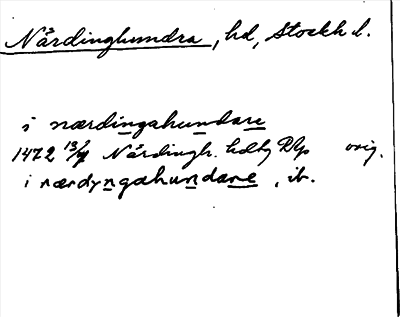 Närdinghundra, hd, Stockh l.
i nærdingahundare
1472 13/4 Närdingh. hdbg Dlp orig.
i nærdyngahundare, ib.